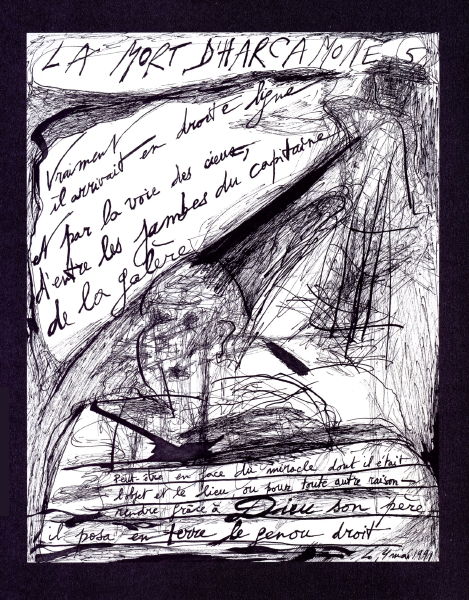 LA MORT D'HARCAMONE S
Vraiment
il arrivait en droite ligne
et par la voie des cieux,
d'entre les jambes du capitaine
de la galère
Peut-être en face du miracle dont il était
l'objet et le lieu ou pour toute autre raison —
rendre grâce à Dieu son père,
il posa en terre le genou droit
4 mai 1991